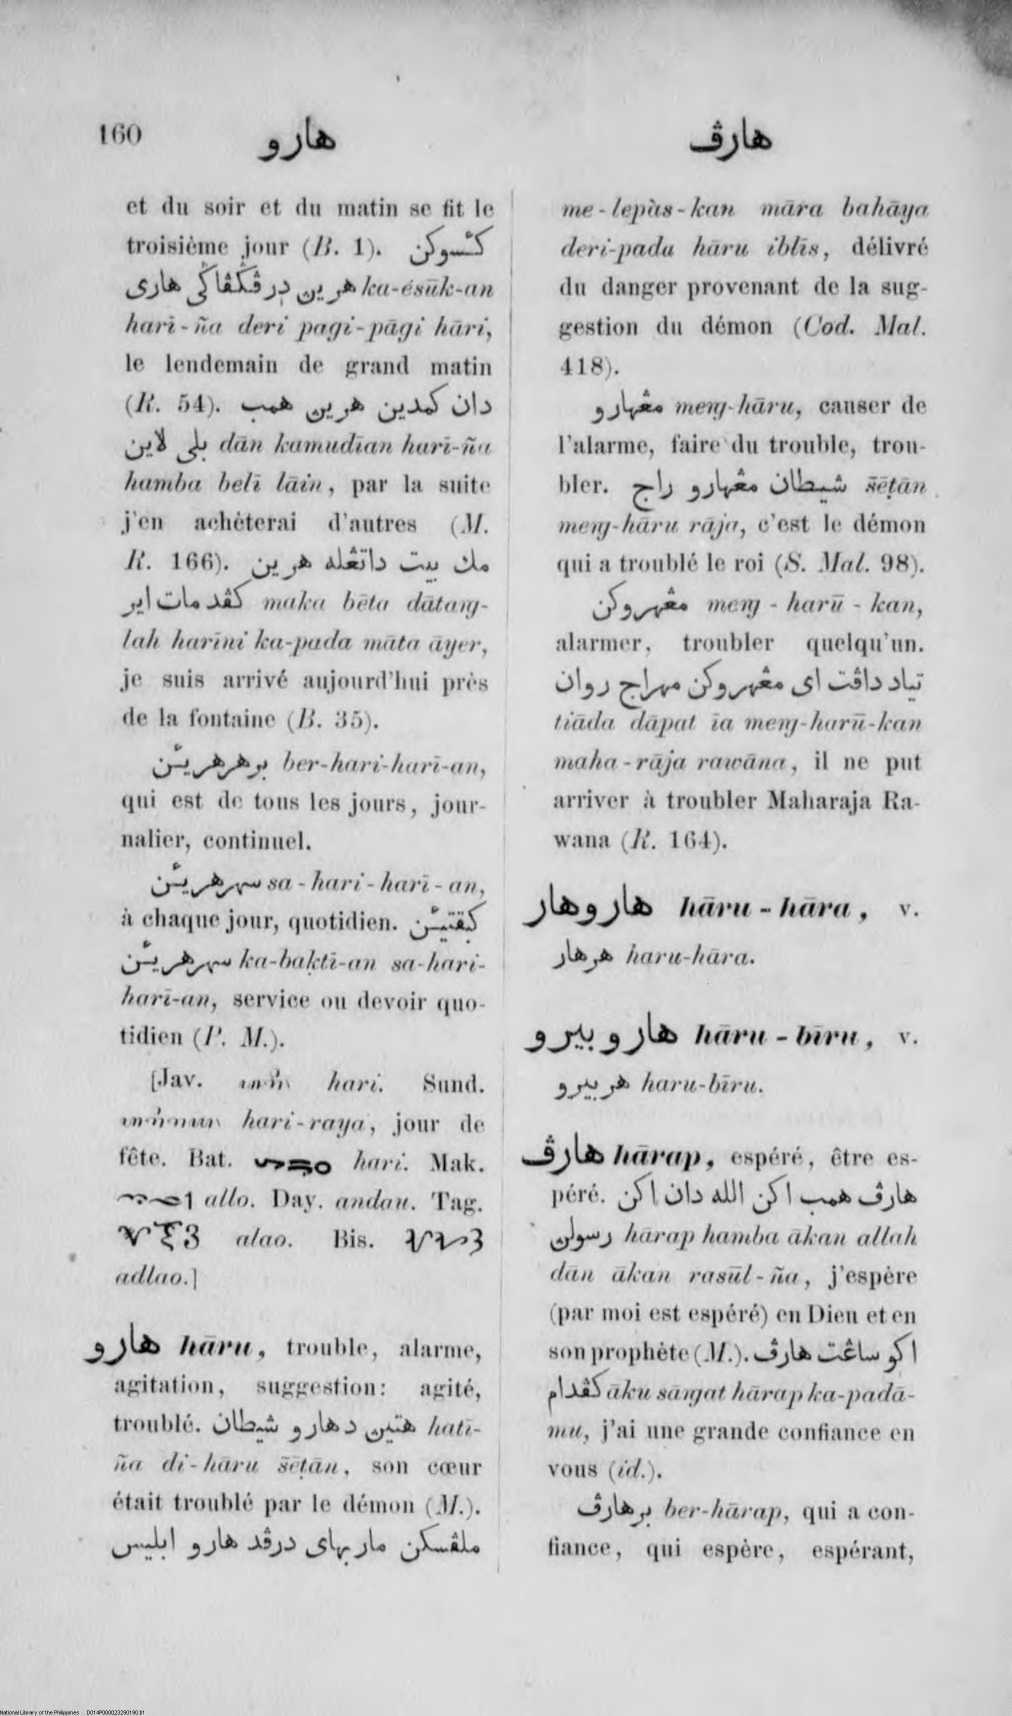 160
هارو
هارڤ
et du soir et du matin se fit le
troisième jour (B. 1). كئسوكن
هرين درڤݢيڤاݢي هاري ka-ésūk-an
harī-ña deri pagi-pāgi hāri,
le lendemain de grand matin
(R. 54). دان كمدين هرين همب
بلي لاين dān kamudīan harī-ña
hamba belī lāin, par la suite
j'en achèterai d'autres (M.
R. 166). مك بيت داتڠله هرين
كڤد مات اير maka bēta dātaṅg-
lah harīni ka-pada māta āyer,
je suis arrivé aujourd'hui près
de la fontaine (B. 35).
برهرهريئن ber-hari-harī-an,
qui est de tous les jours, jour-
nalier, continuel.
سهرهريئن sa-hari-harī-an,
à chaque jour, quotidien. كبقتيئن
سهرهريئن ka-baḳtī-an sa-hari-
harī-an, service ou devoir quo-
tidien (P. M.).
[Jav. hari. Sund.
hari-raya, jour de
fête. Bat. hari. Mak.
allo. Day. andau. Tag.
alao. Bis.
adlao.]
هارو hāru, trouble, alarme,
agitation, suggestion: agité,
troublé. هتين دهارو شيطان hatī-
ña di-hāru šēṭān, son cœur
était troublé par le démon (M.).
ملڤسكن مار بهاي درڤد هارو ابليس
me-lepàs-kan māra bahāya
deri-pada hāru iblīs, délivré
du danger provenant de la sug-
gestion du démon (Cod. Mal.
418).
مڠهارو meṅg-hāru, causer de
l'alarme, faire du trouble, trou-
bler. شيطان مڠهارو راج šēṭān
meṅg-hāru rāja, c'est le démon
qui a troublé le roi (S. Mal. 98).
مڠهروكن meṅg-harū-kan,
alarmer, troubler quelqu'un.
تياد داڤت اي مڠهروكن مهراج روان
tiāda dāpat īa meṅg-harū-kan
maha-rāja rawāna, il ne put
arriver à troubler Maharaja Ra-
wana (R. 164).
هاروهار hāru-hāra, v.
هرهار haru-hāra.
هاروبيرو hāru-bīru, v.
هربيرو haru-bīru.
هارڤ hārap, espéré, être es-
péré. هارڤ همب اكن الله دان اكن
رسولن hārap hamba ākan allah
dān ākan rasūl-ña, j'espère
(par moi est espéré) en Dieu et en
son prophète (M.). اكو ساڠت هارڤ
كڤدام āku sāṅgat hārap ka-padā-
mu, j'ai une grande confiance en
vous (id.).
برهارڤ ber-hārap, qui a con-
fiance, qui espère, espérant,
National Library of the Philippines